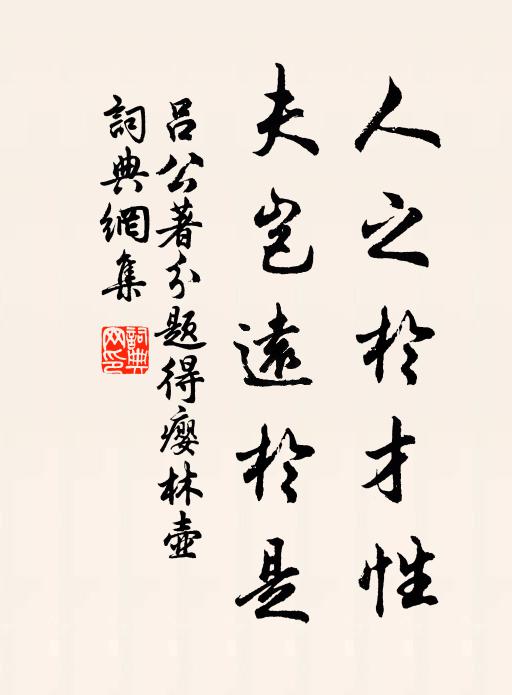 人之於才性
夫豈遠於是
呂公著分題得癭林壺
詞典網集
詞典網印